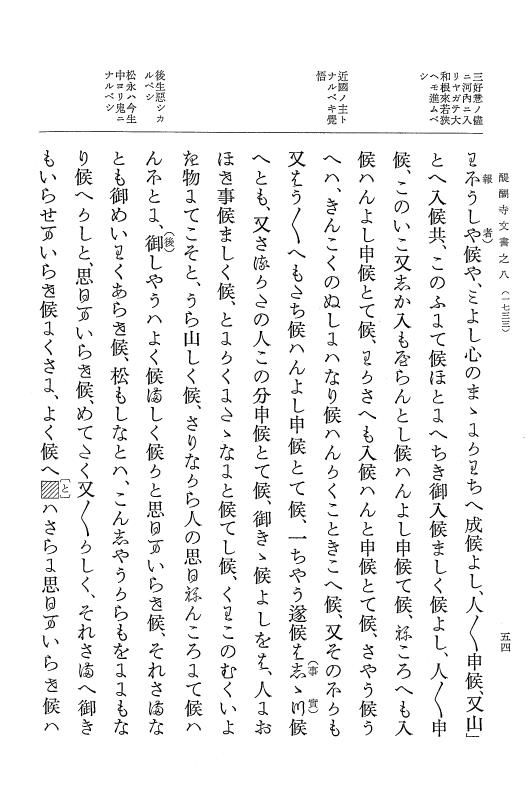 醍醐寺文書之八(一七三三)
五四
三好意ノ儘
ニ河內ニ入
リヤガテ大
和根來若狹
ヘモ進ムベ
シ
近國ノ主ト
ナルベキ覺
悟
後生惡シカ
ルベシ
松永ハ今生
中ヨリ鬼ニ
ナルベシ
(報者)
わ不うしや候や、ミよし心のまゝにかわちへ成候よし、人〳〵申候、又山」
とへ入候共、このふにて候ほとにへちき御入候ましく候よし、人〳〵申
候、このいこ又志か入もやらんとし候ハんよし申候て候、ねころへも入
候ハんよし申候とて候、わかさへも入候ハんと申候とて候、さやう候う
へハ、きんこくのぬしにハなり候ハんかくこときこへ候、又その不かも
又はう〳〵へもたち候ハんよし申候とて候、一ちやう遂候は志ゝ川候
(事實)
へとも、又さ満かたの人この分申候とて候、御きゝ候よしをは、人にお
ほき事候ましく候、とにかくにたゝなにと候てし候、くわこのむくいよ
を物にてこそと、うら山しく候、さりなから人の思日ねんころにて候ハ
ん不とに、御しやうハよく候満しく候かと思日まいらせ候、それさ満な
(後)
とも御めいわくあらせ候、松もしなとハ、こん志やうからもをににもな
り候へかしと、思日まいらせ候、めてたく又〳〵かしく、それさ満へ御き
もいらせまいらせ候よくさに、よく候へ[と]ハさらに思日まいらせ候ハ